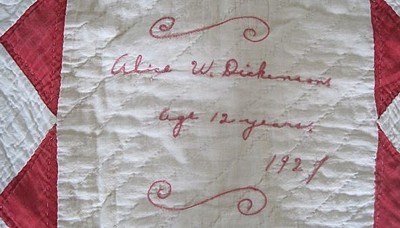 Alice W. Dickenson
Age 12 years.
1927